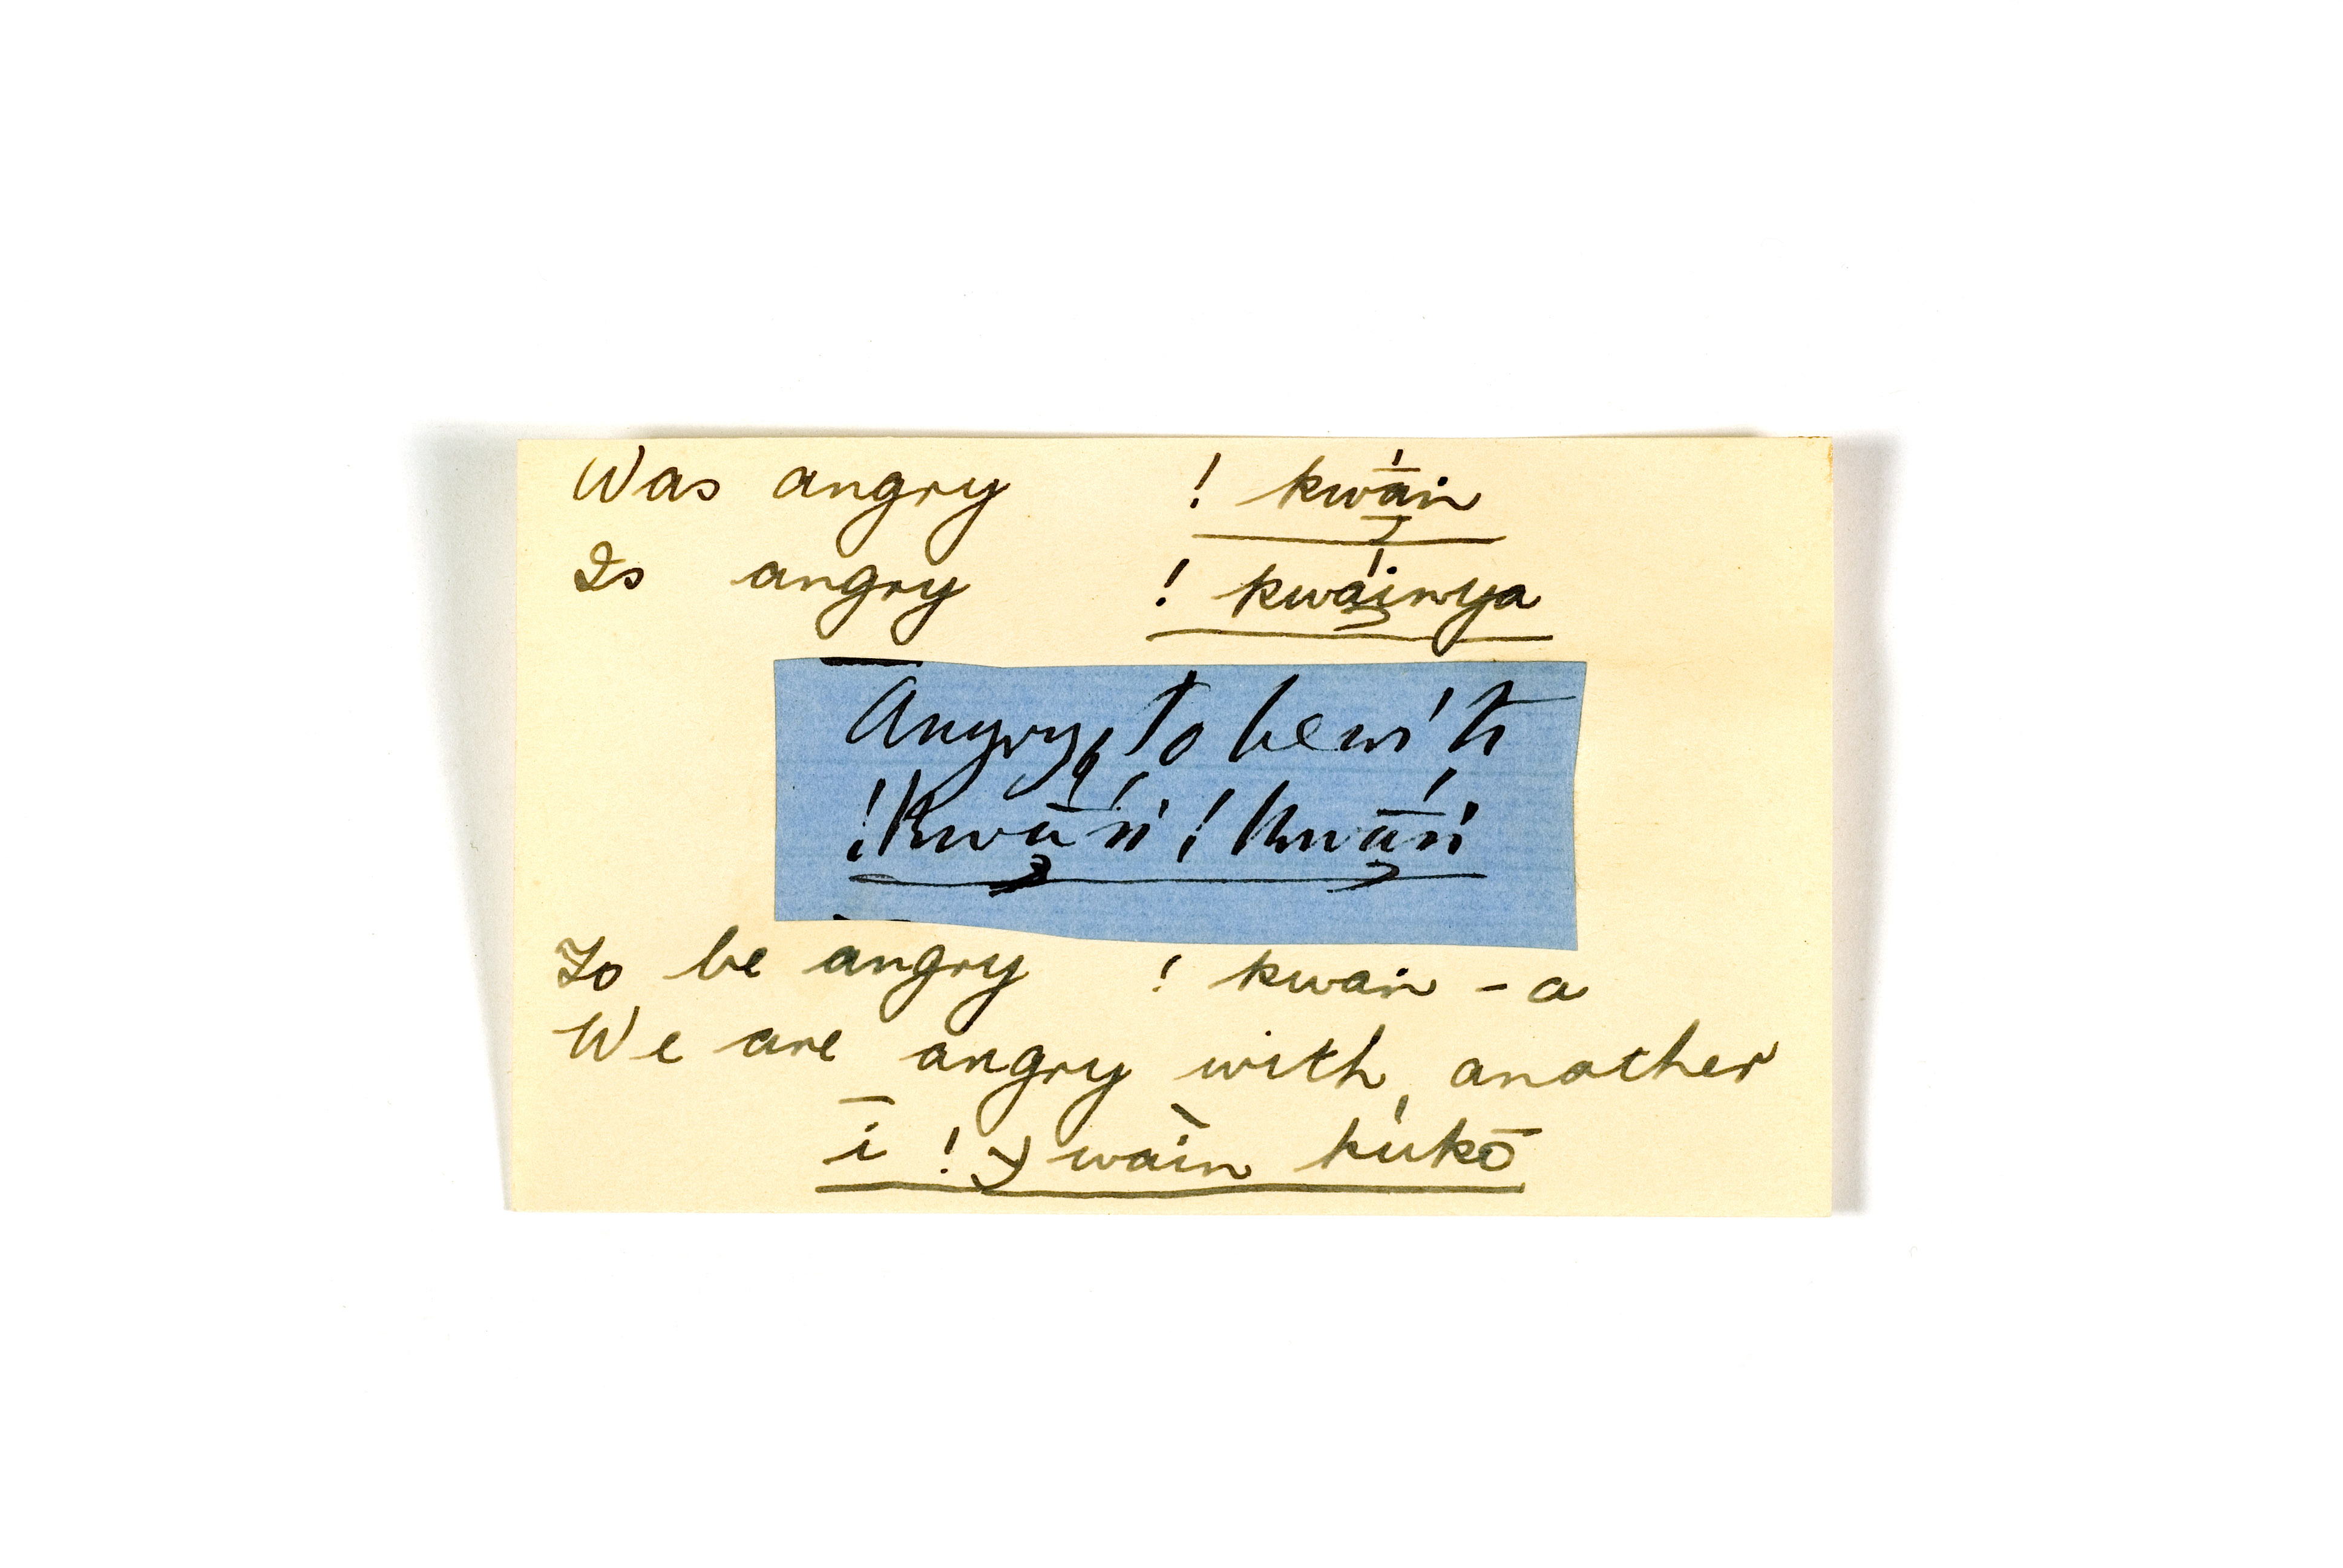 Was angry ! kwā́in
Is angry ! kwáinya
Angry, to be with
!kwā́n ! kwā́n
To be angry ! kwain - a
We are angry with another
ī ! wàin kúkō